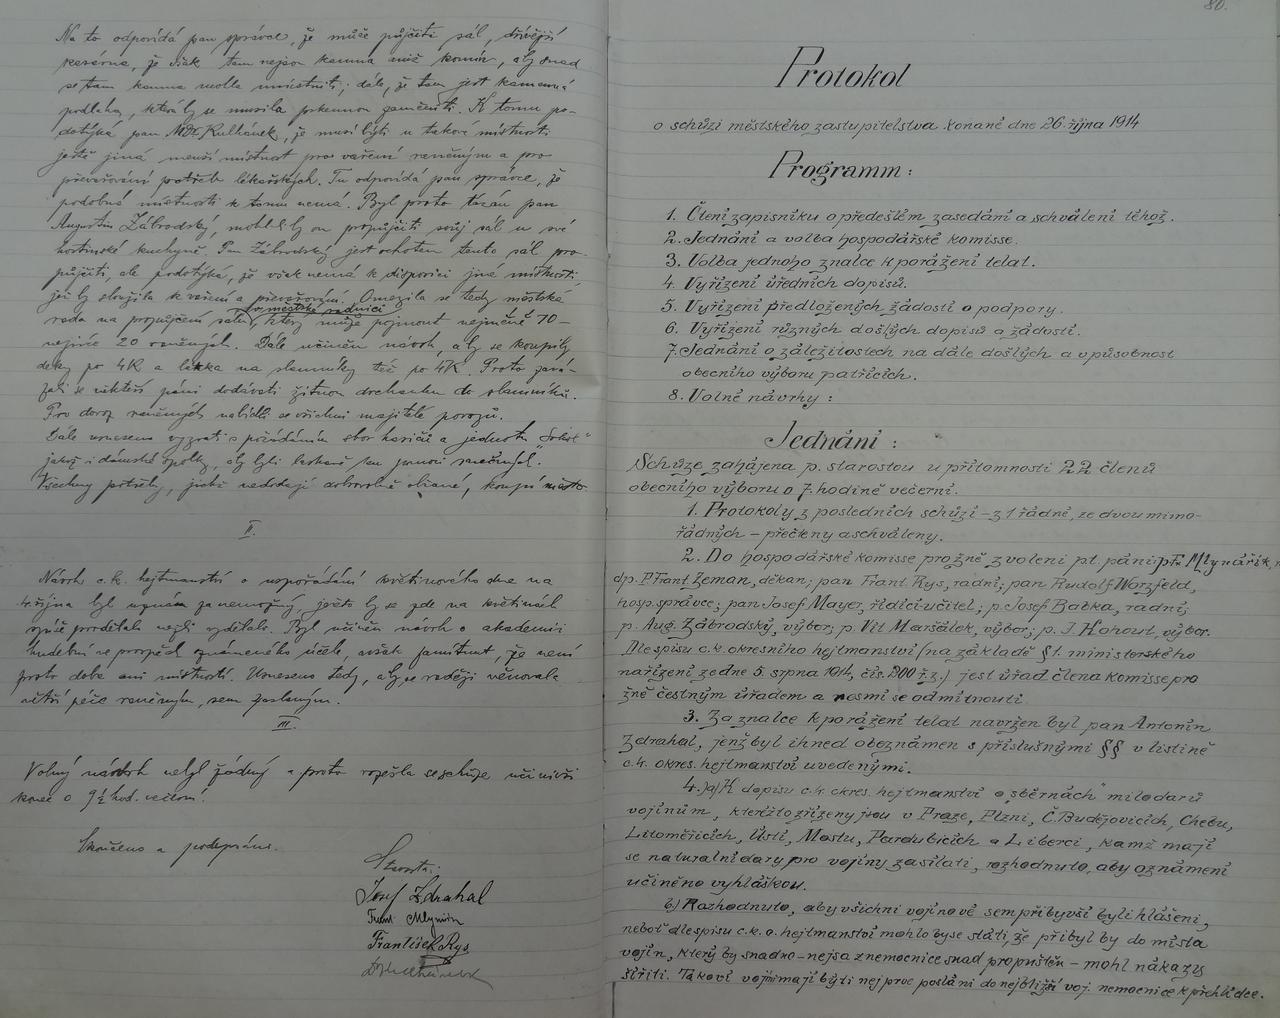 Na to odpovídá pan správce, že může půjčiti sál, dřívější
kasárna, že však tam nejsou kamna aniž komín, aby snad
se tam kamna mohla umístniti; dále, že tam jest kamenná
podlaha, která by se musila prkennou zaměniti. K tomu po-
dotýká pan MDr. Kulhánek, že musí býti u takové místnosti
ještě jiná menší místnost pro vaření raněným a pro
převařování potřeb lékařských. Tu odpovídá pan správce, že
podobné místnosti k tomu nemá. Byl proto tázán pan
Augustin Zábrodský, mohl-li by on propůjčiti svůj sál u své
hostinské kuchyně. Pan Zábrodský jest ochoten tento sál pro-
půjčiti, ale podotýká, že však nemá k disposici jiné místnosti,
jež by sloužila k vaření a převařování. Omezila se tedy městská
v městské radnici
rada na propůjčení sálu, který může pojmout nejméně 10–
nejvíce 20 raněných. Dále učiněn návrh, aby se koupily
deky po 4K a látka na slamníky též po 4K. Proto zavá-
zali se někteří páni dodávati žitnou drchanku do slamníků.
Pro dovoz raněných nabídli se všichni majitelé povozů.
Dále usneseno vyzvati s požádáním sbor hasičů a jednotu „Sokol"
jakož i dámské spolky, aby byli laskavě ku pomoci raněných.
Všechny potřeby, jichž nedostojí dobrovolně sbírané, koupí město
II.
Návrh c.k. hejtmanství o uspořádání květinového dne na
4. října byl uznán za nemožný, ješto by se zde na květinách
spíše prodělalo nežli vydělalo. Byl učiněn návrh o akademii
hudební ve prospěch oznámeného účelu, avšak zamítnut, že není
proto doba ani místností. Usneseno tedy, aby se raději věnovala
větší péče raněným, sem poslaným.
III.
Volný návrh nebyl žádný a proto rozešla se schůze učinivši
konec o 9½ hod. večerní.
Skončeno a podepsáno.
Starosta:
Josef Zdrahal
Frant. Mlynářík
František Rys
80.
Protokol
o schůzi městského zastupitelstva konané dne 26. října 1914
Programm:
1. Čtení zápisníku o předešlém zasedání a schválení téhož.
2. Jednání a volba hospodářské komisse.
3. Volba jednoho znalce k porážení telat.
4. Vyřízení úředních dopisů.
5. Vyřízení předložených žádostí o podpory.
6. Vyřízení různých došlých dopisů a žádostí.
7. Jednání o záležitostech na dále došlých a v působnost
obecního výboru patřících.
8. Volné návrhy:
Jednání:
Schůze zahájena p. starostou u přítomnosti 22 členů
obecního výboru o 7. hodině večerní.
1. Protokoly z posledních schůzí – z 1 řádné, ze dvou mimo-
řádných – přečteny a schváleny.
2. Do hospodářské komisse pro žně zvoleni pt. páni: p. Fr. Mlynářík,
dp. P. Frant. Zeman, děkan; pan Frant. Rys, radní; pan Rudolf Worzfeld,
hosp. správce; pan Josef Mayer, řídící učitel; p. Josef Babka, radní;
p. Aug. Zábrodský, výbor; p. Vít Maršálek, výbor; p. J. Kohout, výbor.
Dle spisu c.k. okresního hejtmanství /na základě §1. ministerského
nařízení ze dne 5. srpna 1914, čís. 200 ř.z./ jest úřad člena komisse pro
žně čestným úřadem a nesmí se odmítnouti.
3. Za znalce k porážení telat navržen byl pan Antonín
Zdrahal, jenž byl ihned obeznámen s příslušnými §§ v listině
c.k. okres. hejtmanství uvedenými.
4. a) K dopisu c.k. okres. hejtmanství o „sběrnách" milodarů
vojínům, kteréžto zřízeny jsou v Praze, Plzni, Č. Budějovicích, Chebu,
Litoměřicích, Ústí, Mostu, Pardubicích a Liberci, kamž mají
se naturalní dary pro vojíny zasílati, rozhodnuto, aby oznámení
učiněno vyhláškou.
b) Rozhodnuto, aby všichni vojínové sem přibyvší byli hlášeni,
neboť dle spisu c.k. o. hejtmanství mohlo by se státi, že přibyl by do města
vojín, který by snadno – nejsa z nemocnice snad propuštěn – mohl nákazu
šířiti. Takoví vojíni mají býti nejprve posláni do nejbližší voj. nemocnice k přehlídce.